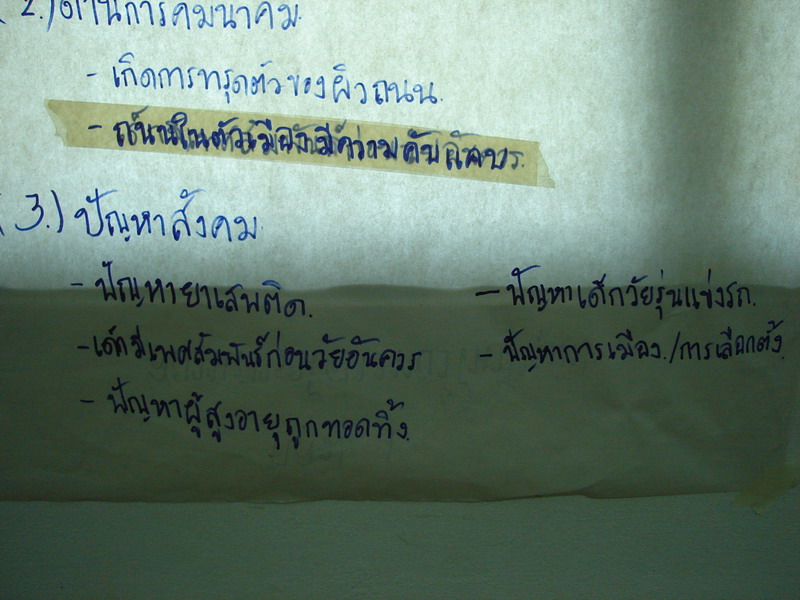 (2.) ด้านการคมนาคม.
- เกิดการทรุดตัวของผิวถนน.
- ถนนในตัวเมืองมีความคับคั่ง
(3.) ปัญหาสังคม.
- ปัญหายาเสพติด.
- เด็กมีเพศสัมพันธ์ก่อนวัยอันควร
- ปัญหาผู้สูงอายุถูกทอดทิ้ง.
- ปัญหาเด็กวัยรุ่นแข่งรถ.
- ปัญหาการเมือง./การเลือกตั้ง.